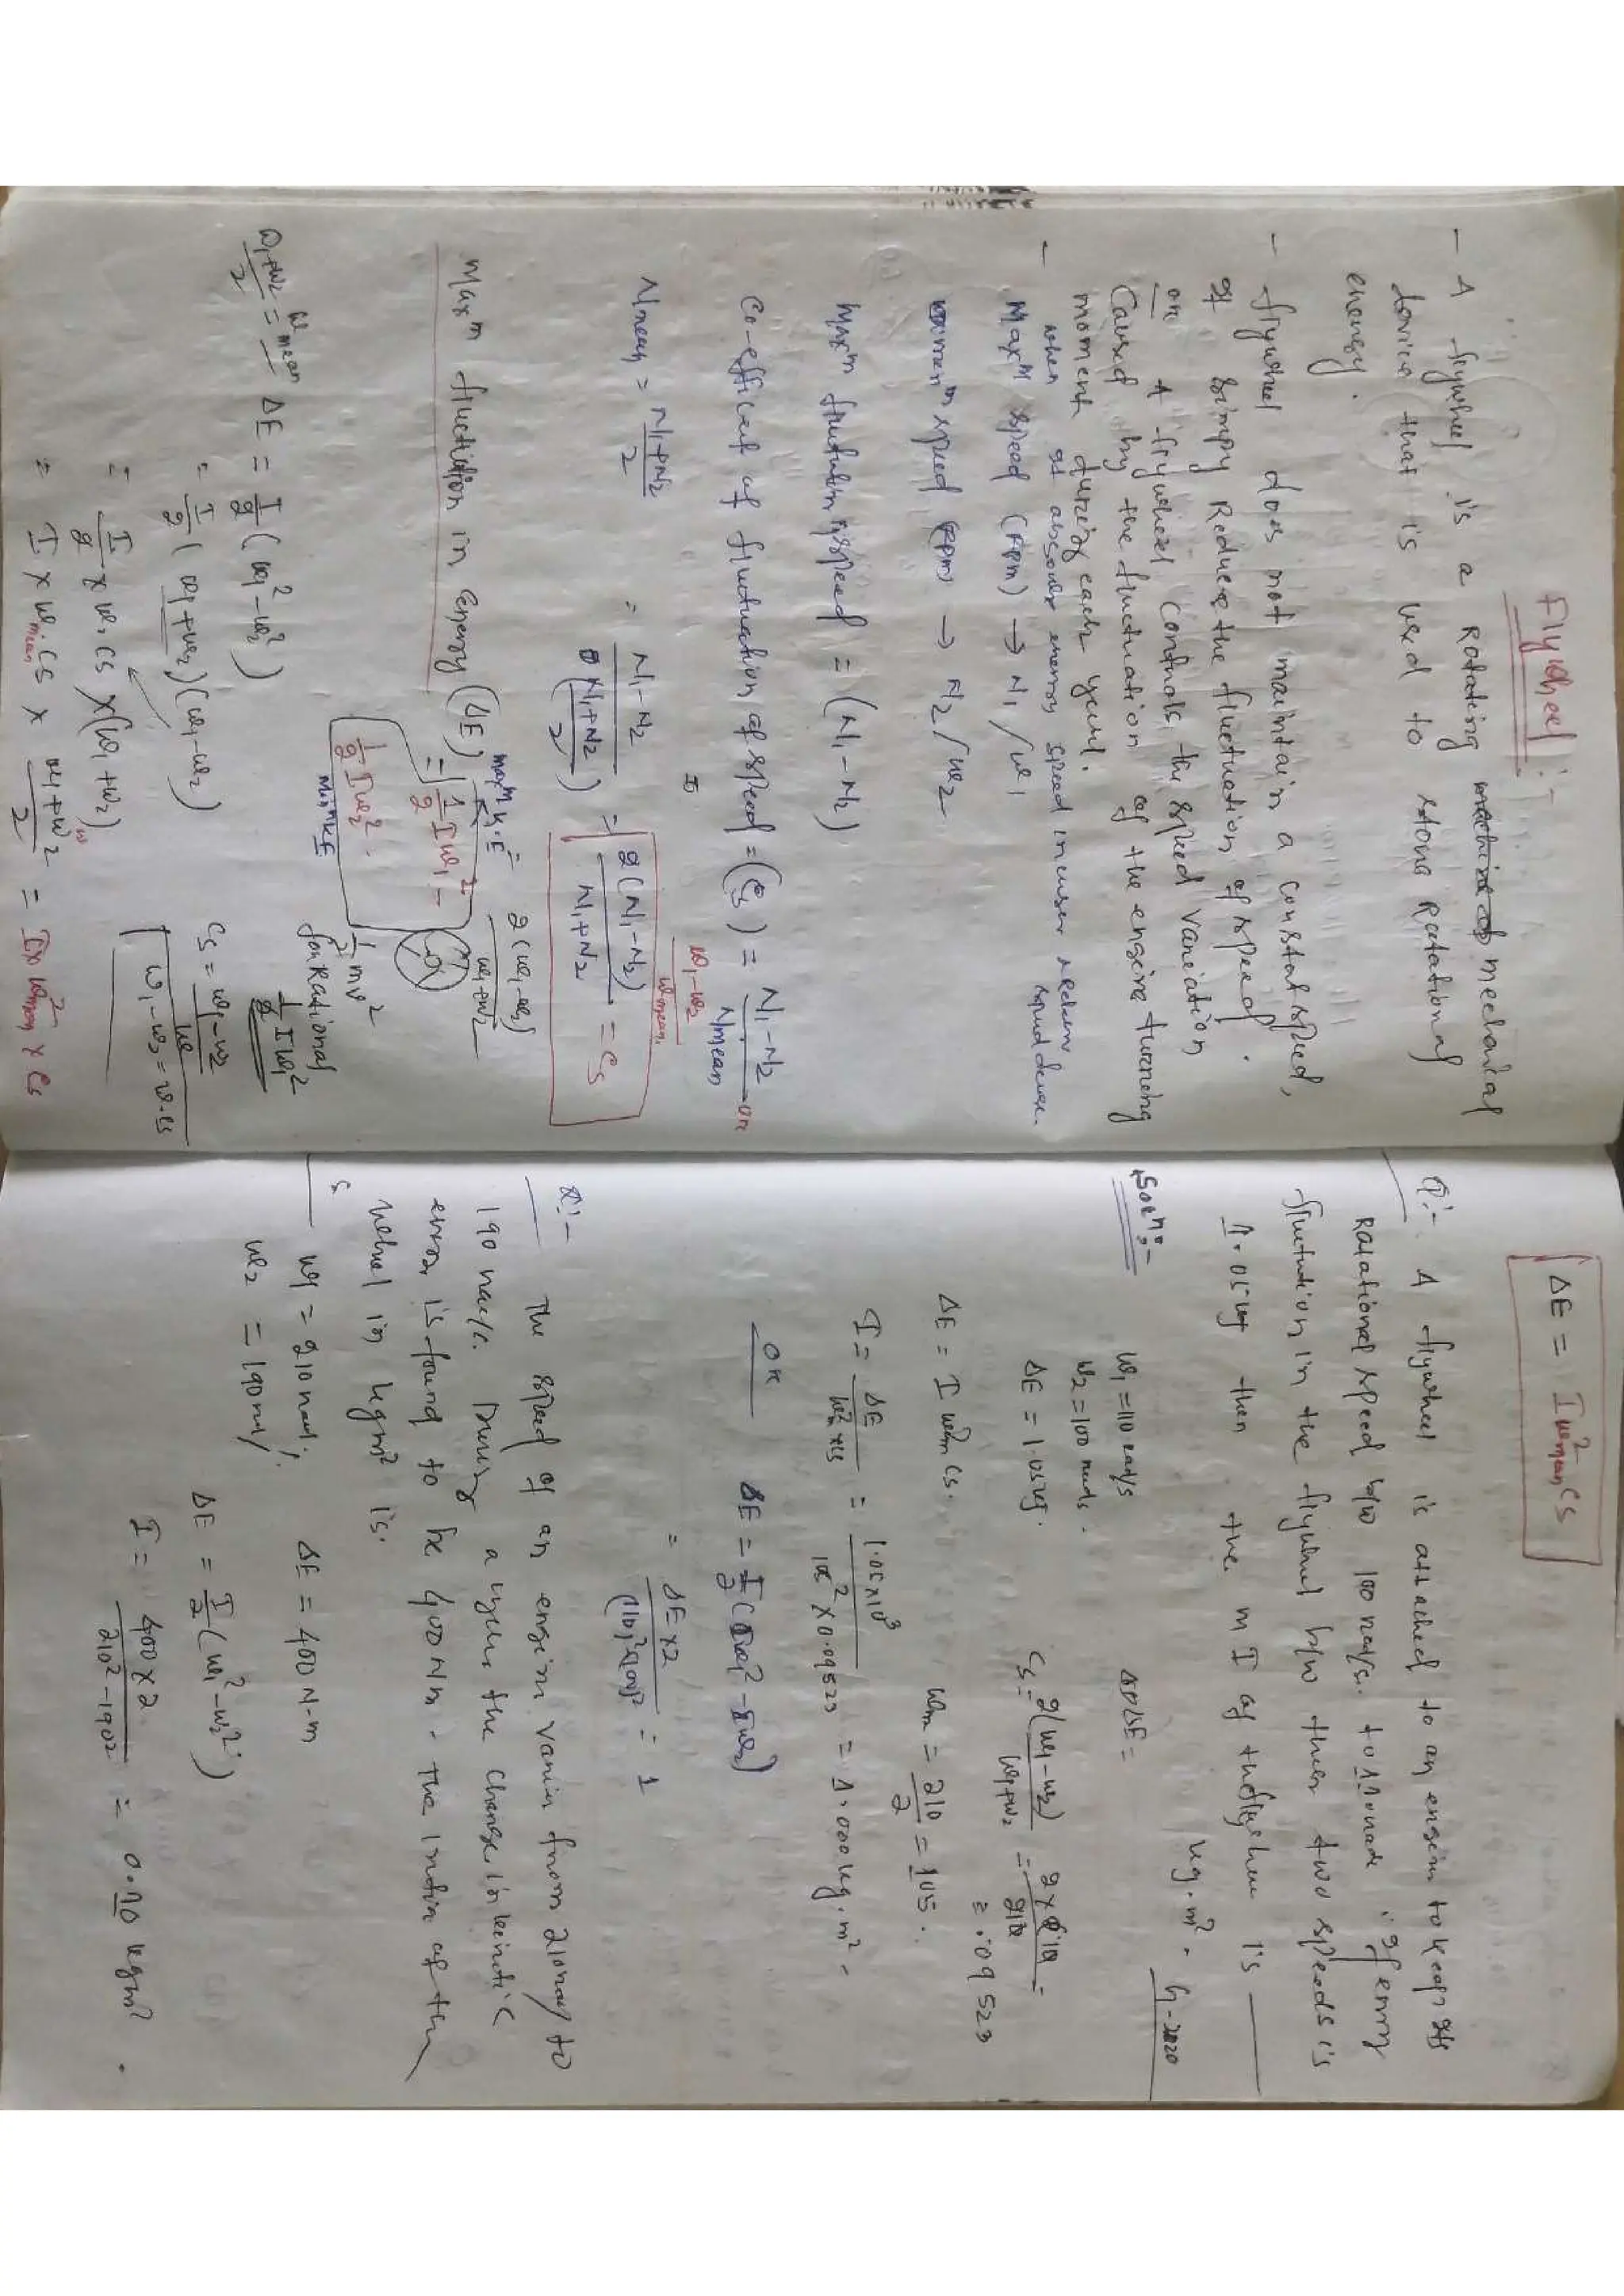 Flywheel :-
- A flywheel is a Rotating mechanical
device that is used to store Rotational
energy.
- flywheel does not maintain a constat speed,
It simpy Reduces the fluctuation of speed.
or A flywheel controls the speed variation
Caused by the fluctuation of the engine turning
moment during each
- when it speed
Maxᵐ speed (rpm) → N₁/ω₁
speed (rpm) → N₂/ω₂
Maxᵐ speed = (N₁-N₂)
Co-efficient of fluctuation of speed = (Cs) = N₁-N₂/Nmean or ω₁-ω₂/ωmean.
Nmean = N₁+N₂/2 = N₁-N₂/(N₁+N₂/2) = 2(N₁-N₂)/N₁+N₂ = Cs
= 2(ω₁-ω₂)/ω₁+ω₂
Maxᵐ fluctution in energy (ΔE) = ½Iω₁² - ½Iω₂².
maxᵐ K.E
Min KE
½mv²
for Rational
½Iω₁²
ω₁+ω₂/2 = ωmean ΔE = I/2 (ω₁²-ω₂²)
= I/2 (ω₁+ω₂)(ω₁-ω₂)
Cs = ω₁-ω₂/ω
ω₁-ω₂ = ω.Cs
= I/2 x ω.Cs x (ω₁+ω₂)
= I x ωmean.Cs x ω₁+ω₂/2 = I x ω²mean x Cs
ΔE = Iω²mean Cs
Q:- A flywheel is attached to an engine to keep its
Rotational speed b/w 100 rad/s. to 110 rad/s. If energy
fluctution in the flywheel b/w then two speeds is
1.05 kJ then the m I of the flywheel is ____
kg.m². G-2020
Solⁿ:-
ω₁ = 110 rad/s
ω₂ = 100 rad/s.
ΔE = 1.05 kJ.
ΔE =
Cs = 2(ω₁-ω₂)/ω₁+ω₂ = 2x10/210 =
= .09523
ΔE = Iω²m Cs.
ωm = 210/2 = 105.
I = ΔE/ω²m x Cs = 1.05x10³/105² x 0.09523 = 1.000 kg.m².
OR
ΔE = I/2 (ω₁²-ω₂²)
= ΔE x 2/(110)²-(100)² = 1
Q:- The speed of an engine varies from 210 rad/s to
190 rad/s. During a cycle the change in kinetic
energy is found to be 400 Nm. The inertia of the
wheel in kgm² is.
S ω₁ = 210 rad/s ΔE = 400 N-m
ω₂ = 190 rad/
ΔE = I/2 (ω₁²-ω₂²)
I = 400x2/210²-190² = 0.10 kgm².